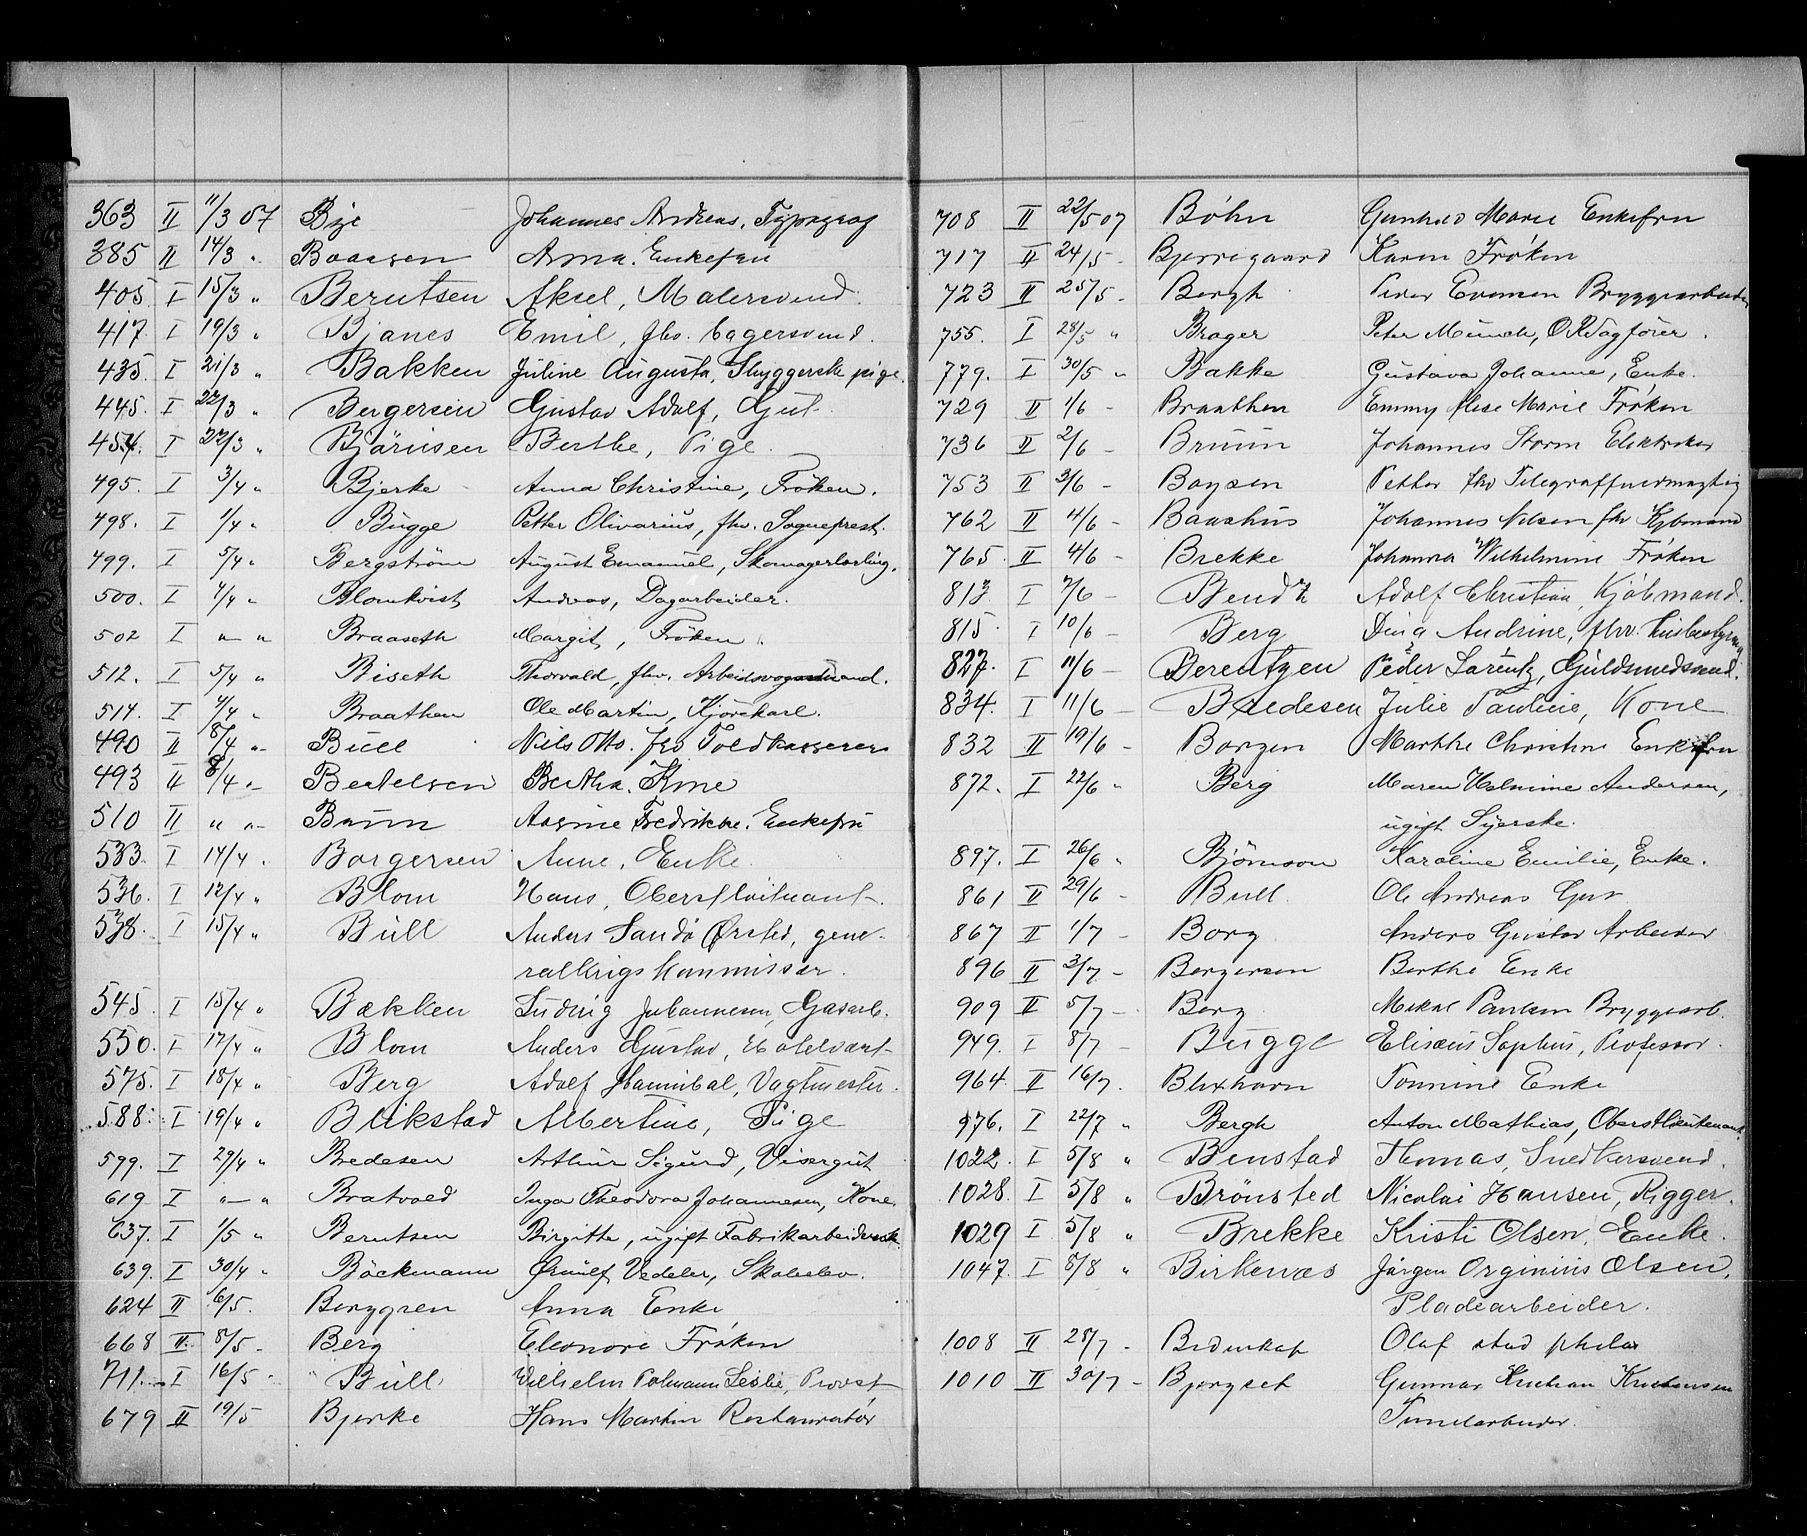 363 II 11/3 07 Bye Johannes Andreas, Typograf
385 II 14/3 „ Baassen Anna. Enkefru
405 I 15/3 „ Berntsen Aksel, Malersvend.
417. I 19/3 „ Bjanes Emil, fhv. Bagersvend.
435. I 21/3 „ Bakken Juline Augusta, Skyggersk pige.
445. I 22/3 „ Bergersen Gustav Adolf, Gut
454. I 22/3 „ Björnsen Berthe, Pige.
495. I 3/4 „ Bjerke Anna Christine, Frøken.
498. I 1/4 „ Bugge Petter Olivarius, fhv. Sogneprest.
499. I 5/4 „ Bergström August Emanuel, Skomagerlærling.
500. I 4/4 „ Blomkvist Andreas, Dagarbeider.
502 I „ „ Braaseth Margit, Frøken.
512. I 5/4 „ Biseth Thorvald, fhv. Arbeidsvogsmand.
514. I 4/4 „ Braathen Ole Martin, Kjørekarl.
490 II 8/4 „ Bull Niels Otto. fhv Toldkasserer
493 II 8/4 „ Bertelsen Bertha. Kone
510 II „ „ Bruun Aasine Fredrikke. Enkefru
533. I 14/4 „ Borgersen Anne, Enke.
536. I 12/4 „ Blom Hans, Oberstløitnant.
538. I 15/4 „ Bull Anders Sandö Ørsted, gene-
ralkrigskommissær.
545. I 15/4 „ Bækken Ludvig Johannesen, Gasarb.
550. I 17/4 „ Blom Anders Gustav, Hotelvært
575. I 18/4 „ Berg Adolf Hannibal, Vagtmester.
588. I 19/4 „ Blikstad Albertine, Pige
599. I 29/4 „ Bredesen Arthur Sigurd, Visergut
619 I „ „ Bratvold Inga Theodora Johannesen, Kone.
637. I 1/5 „ Berntsen Birgitte, ugift Fabrikarbeiderske
639. I 30/4 „ Böckmann Ørnulf Vedeler, Skoleelev.
624 II 6/5. Berggren Anna Enke
668 II 8/5. Berg Eleonore Frøken
711. I 16/5 „ Bull Wilhelm Polmann Leslie, Provst
679 II 19/5 Bjerke Hans Martin Restauratør
708 II 22/5 07 Bøhn Gunhild Marie Enkefru
717 II 24/5 - Bjerregaard Karen Frøken
723 II 25/5 - Bergh Peder Evensen Bryggearbeider
755. I 28/5 „ Brager Peter Munch, O.R.Sagfører.
779. I 30/5 „ Bakke Gustava Johanne, Enke.
729 II 1/6 - Braathen Emmy Elise Marie Frøken
736 II 2/6 - Bruun Johannes Storm Elektriker
753 II 3/6 - Boysen Petter fhv Telegraffuldmægtig
762 II 4/6 - Baashus Johannes Nilsen fhv Kjbmand
765 II 4/6 - Brekke Johanna Wilhelmine Frøken
813 I 7/6 - Bendz Adolf Christian, Kjøbmand.
815 I 10/6 - Berg Dina Andrine, fhv. Husbestyrer
827. I 11/6 - Berentzen Peder Larentz, Guldsmedsvend.
834. I 11/6 - Bredesen Julie Pauline, Kone
832 II 19/6 - Borgen Marthe Christine Enkefru
872. I 22/6 „ Berg Maren Helmine Andersen,
ugift Syerske.
897. I 26/6 „ Bjørnson Karoline Emilie, Enke.
861 II 29/6 - Bull Ole Andreas Gut
867 II 1/7 - Borg Anders Gustav Arbeider
896 II 3/7 - Bergersen Berthe Enke
909 II 5/7 - Berg Mikal Paulsen Bryggearb.
949. I 8/7 - Bugge Elisæus Sophus, Professor.
964. II 16/7. Blixhavn Tonnine Enke
976. I 22/7 „ Bergh Anton Mathias, Oberstlieutenant.
1022. I 5/8 „ Benstad Thomas, Snedkersvend.
1028. I 5/8 „ Brönsted Nicolai Hansen, Rigger.
1029 I 5/8 „ Brekke Kristi Olsen, Enke.
1047. I 8/8 „ Birkenæs Jørgen Orginius Olsen,
Pladearbeider.
1008 II 28/7 - Bidenkap Olaf stud philos
1010 II 30/7 - Bjørgset Gunnar Kristian Kristensen
Tunelarbeider.